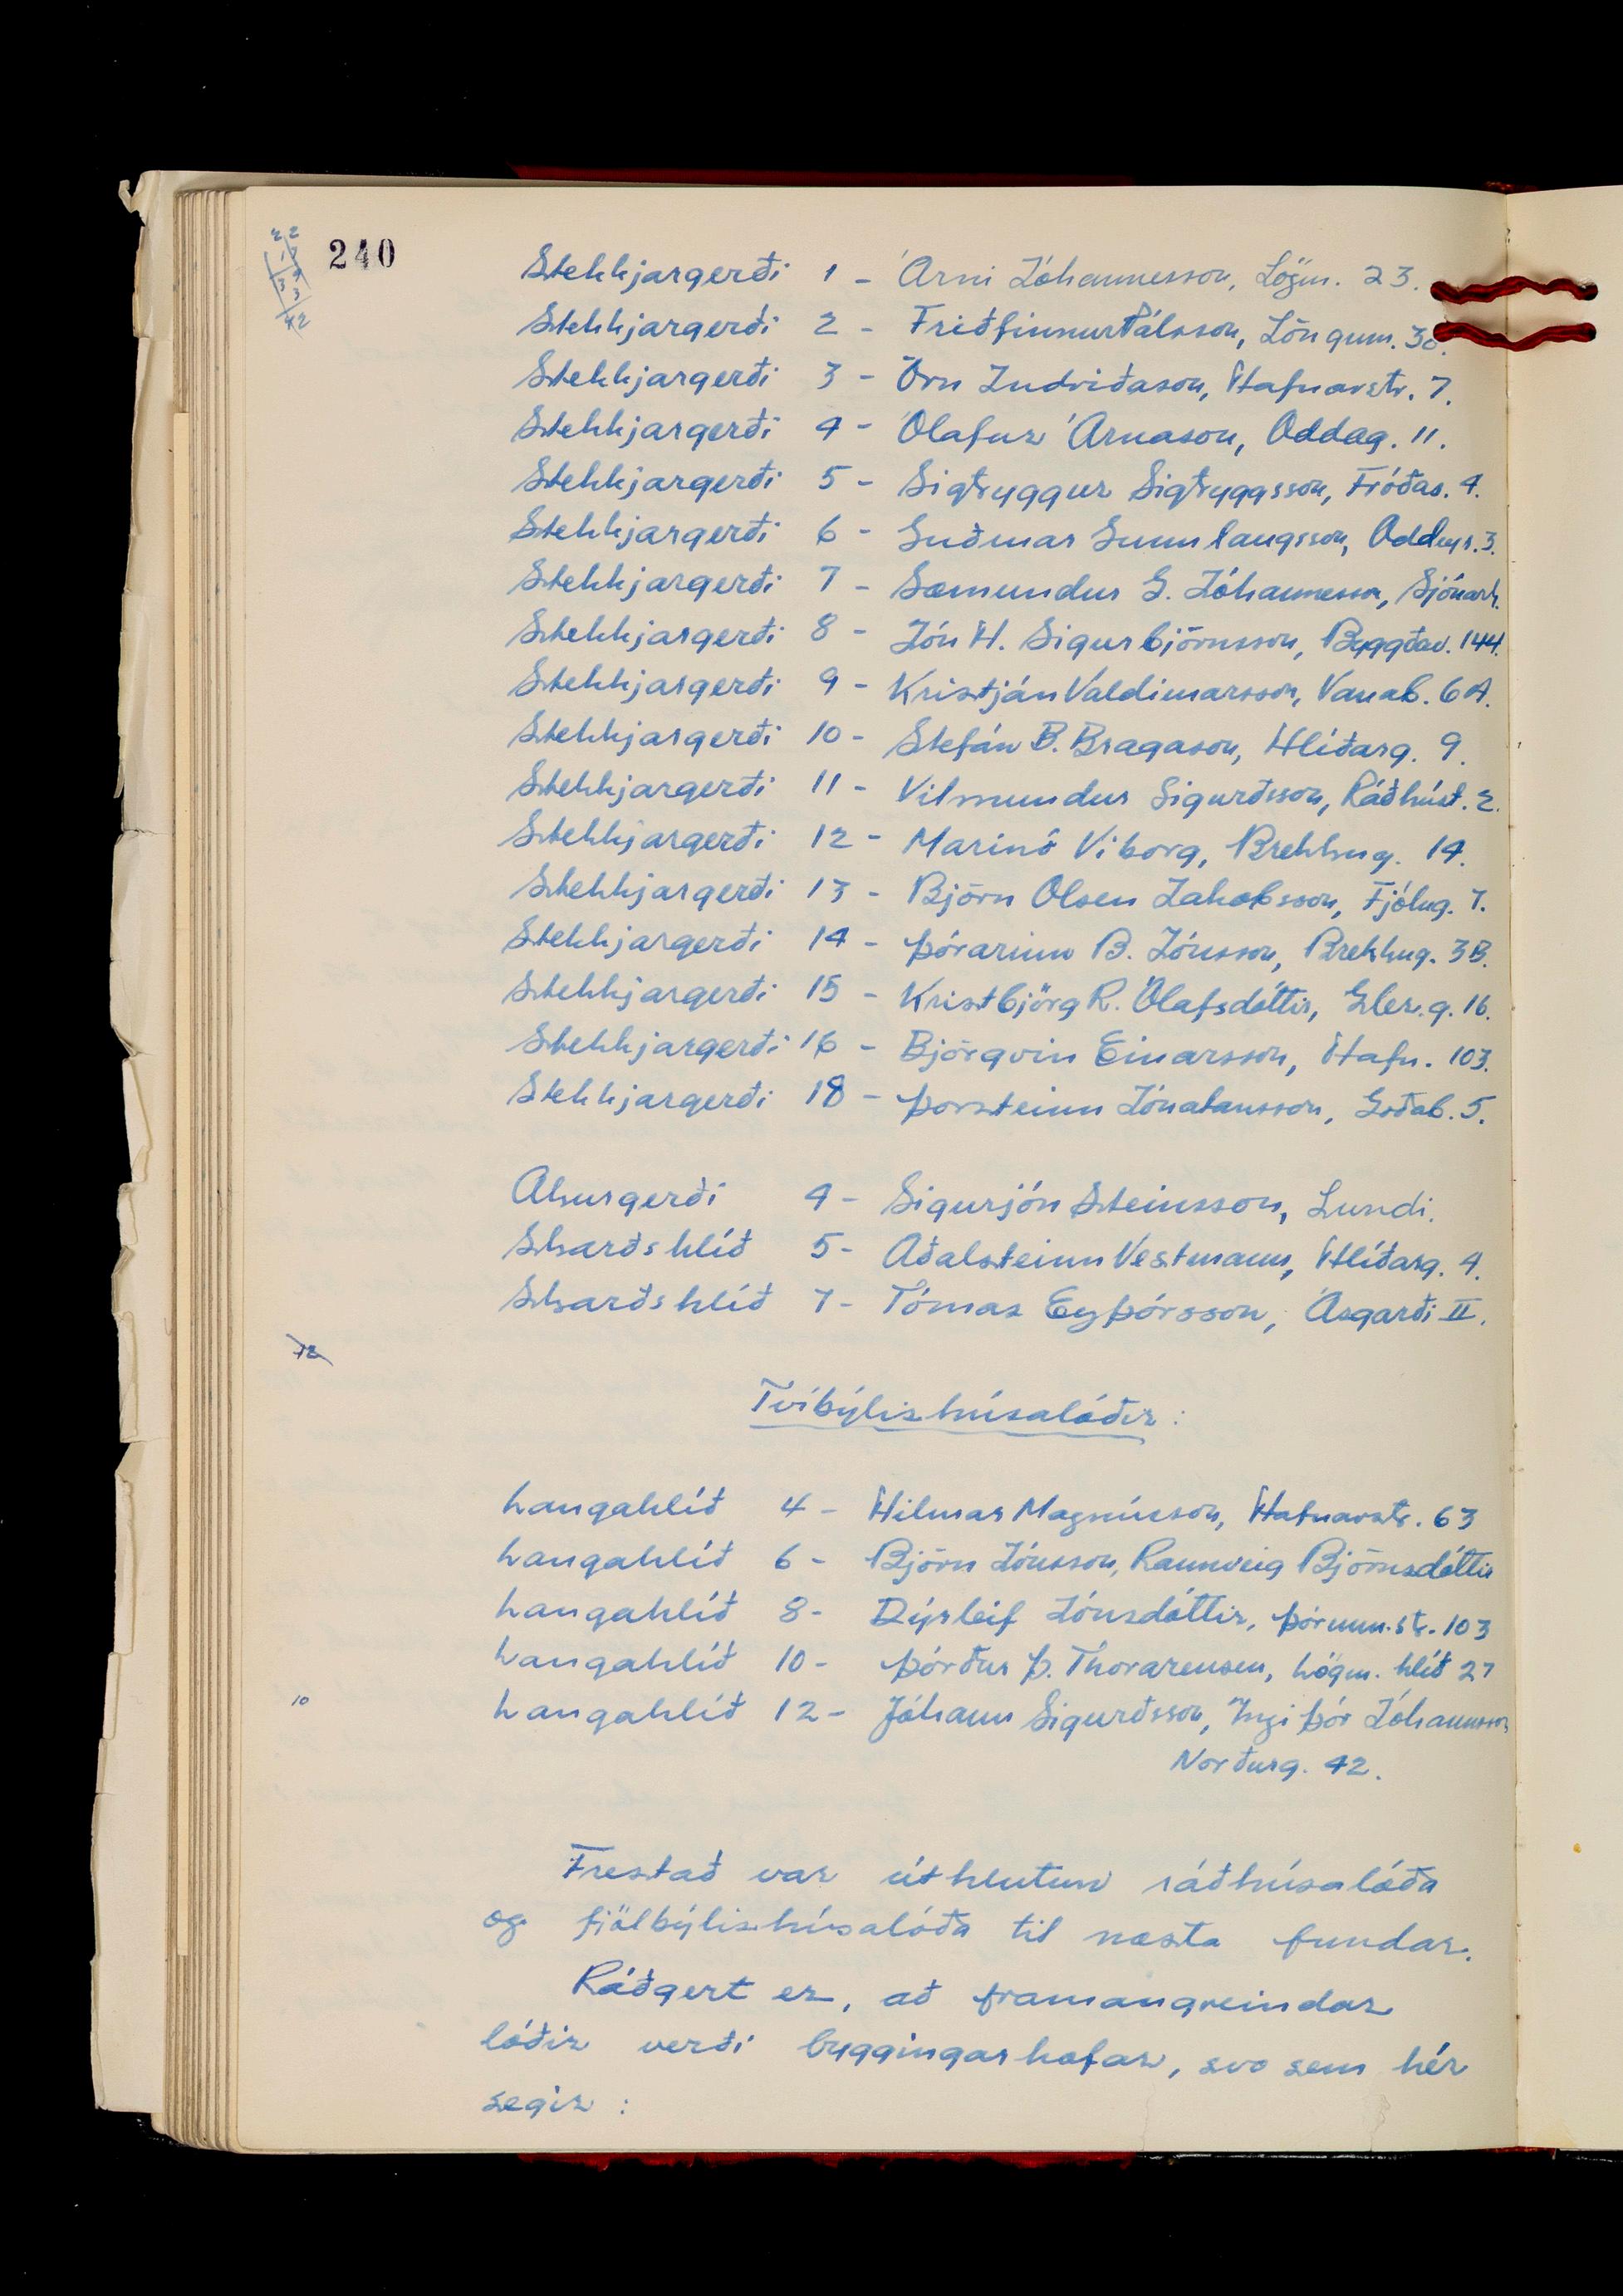 240
Stekkjargerði 1 - Árni Jóhannesson, Lögm. 23.
Stekkjargerði 2 - Friðfinnur Pálsson, Löngum. 30.
Stekkjargerði 3 - Örn Indriðason, Hafnarstr. 7.
Stekkjargerði 4 - Ólafur Árnason, Oddag. 11.
Stekkjargerði 5 - Sigtryggur Sigtryggsson, Fróðas. 4.
Stekkjargerði 6 - Guðmar Gunnlaugsson, Oddeyr. 3.
Stekkjargerði 7 - Sæmundur G. Jóhannesson, Sjónarh.
Stekkjargerði 8 - Jón H. Sigurbjörnsson, Byggðav. 144.
Stekkjargerði 9 - Kristján Valdimarsson, Vanab. 6A.
Stekkjargerði 10 - Stefán B. Bragason, Hlíðarg. 9.
Stekkjargerði 11 - Vilmundur Sigurðsson, Ráðhúst. 2.
Stekkjargerði 12 - Marinó Viborg, Brekkug. 14.
Stekkjargerði 13 - Björn Olsen Jakobsson, Fjólug. 7.
Stekkjargerði 14 - Þórarinn B. Jónsson, Brekkug. 3B.
Stekkjargerði 15 - Kristbjörg R. Ólafsdóttir, Gler.g. 16.
Stekkjargerði 16 - Björgvin Einarsson, Hafn. 103.
Stekkjargerði 18 - Þorsteinn Jónatansson, Goðab. 5.
Akurgerði 4 - Sigurjón Steinsson, Lundi.
Skarðshlíð 5 - Aðalsteinn Vestmann, Hlíðarg. 4.
Skarðshlíð 7 - Tómas Eyþórsson, Ásgarði II.
12
Tvíbýlishúsalóðir:
Langahlíð 4 - Hilmar Magnússon, Hafnarstr. 63
Langahlíð 6 - Björn Jónsson, Rannveig Björnsdóttir
Langahlíð 8 - Dýrleif Jónsdóttir, Þórunn.str. 103
Langahlíð 10 - Þórður Þ. Thorarensen, Lögm.hlíð 27
10
Langahlíð 12 - Jóhann Sigurðsson, Ingi Þór Jóhannsson
Norðurg. 42.
Frestað var úthlutun ráðhúsalóða
og fjölbýlishúsalóða til næsta fundar.
Ráðgert er, að framangreindar
lóðir verði byggingarhæfar, svo sem hér
segir: